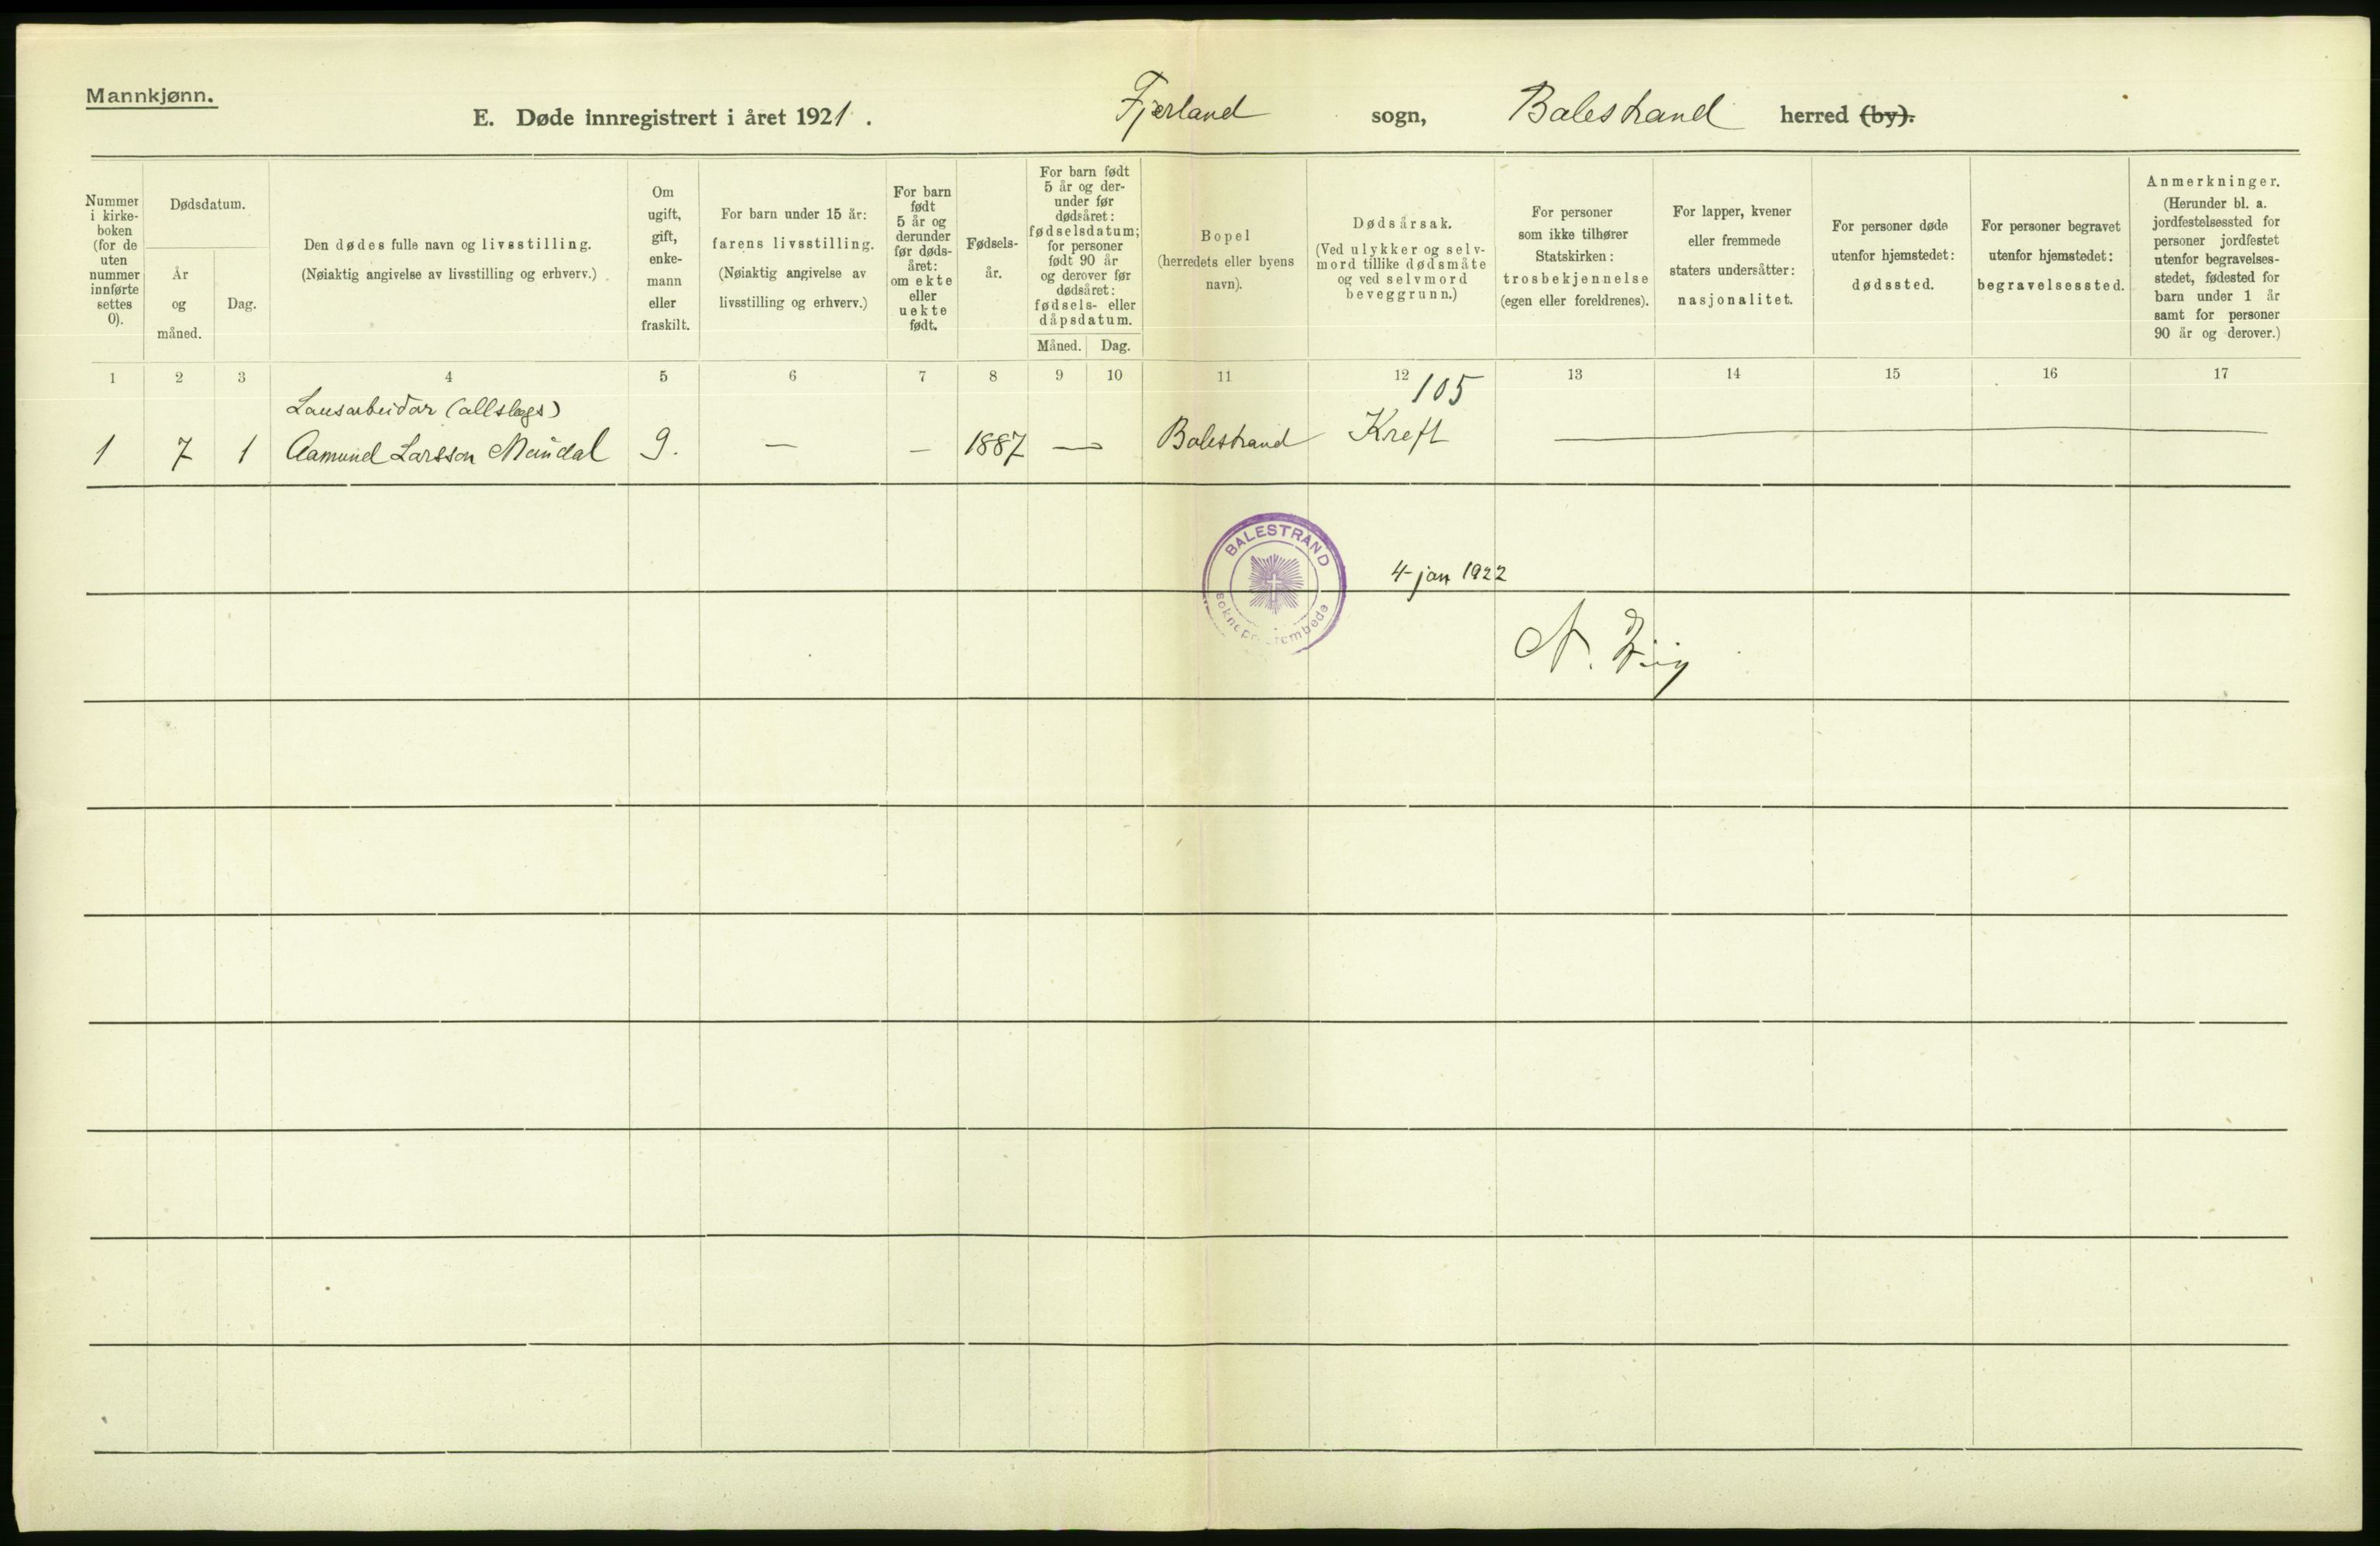 Mannkjønn.
E. Døde innregistrert i året 1921. Fjærland sogn, Balestrand herred (by).
Nummer i kirke-boken (for de uten nummer innførte settes 0).
Dødsdatum.
År og måned.
Dag.
Den dødes fulle navn og livsstilling.
(Nøiaktig angivelse av livsstilling og erhverv.)
Om ugift, gift, enke-mann eller fraskilt.
For barn under 15 år:
farens livsstilling.
(Nøiaktig angivelse av
livsstilling og erhverv.)
For barn født 5 år og derunder før døds-året: om ekte eller uekte født.
Fødsels-år.
For barn født 5 år og der-under før dødsåret: fødselsdatum; for personer født 90 år og derover før dødsåret: fødsels- eller dåpsdatum.
Måned. Dag.
Bopel
(herredets eller byens
navn).
Dødsårsak.
(Ved ulykker og selv-
mord tillike dødsmåte
og ved selvmord
beveggrunn.)
For personer
som ikke tilhører
Statskirken:
trosbekjennelse
(egen eller foreldrenes).
For lapper, kvener
eller fremmede
staters undersåtter:
nasjonalitet.
For personer døde
utenfor hjemstedet:
dødssted.
For personer begravet
utenfor hjemstedet:
begravelsessted.
Anmerkninger.
(Herunder bl. a.
jordfestelsessted for
personer jordfestet
utenfor begravelses-
stedet, fødested for
barn under 1 år
samt for personer
90 år og derover.)
1 2 3 4 5 6 7 8 9 10 11 12 13 14 15 16 17
105
Lausarbeidar (allslags)
1 7 1 Aamund Larsson Mundal g. — — 1887 — Balestrand Kreft —
BALESTRAND
4 jan 1922